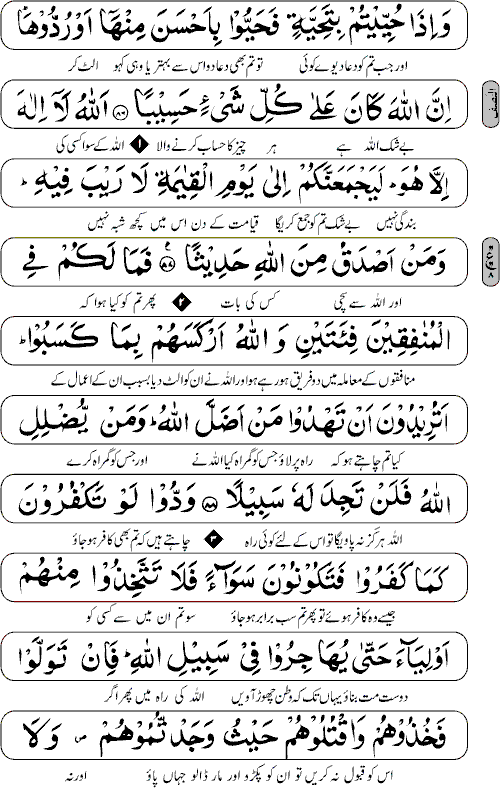 وَاِذَا حُيِّيْتُمْ بِتَحِيَّةٍ فَحَيُّوْا بِاَحْسَنَ مِنْهَاۤ اَوْ رُدُّوْهَاؕ
اور جب تم کو دعا دیوے کوئی تو تم بھی دعا دو اس سے بہتر یا وہی کہو الٹ کر
اِنَّ اللّٰهَ كَانَ عَلٰى كُلِّ شَيْءٍ حَسِيْبًا ﴿۸۶﴾ اَللّٰهُ لَاۤ اِلٰهَ
النصف
بے شک اللہ ہے ہر چیز کا حساب کرنے والا ۱ اللہ کے سوا کسی کی
اِلَّا هُوَؕ لَيَجْمَعَنَّكُمْ اِلٰى يَوْمِ الْقِيٰمَةِ لَا رَيْبَ فِيْهِؕ
بندگی نہیں بے شک تم کو جمع کریگا قیامت کے دن اس میں کچھ شبہ نہیں
وَمَنْ اَصْدَقُ مِنَ اللّٰهِ حَدِيْثًا ﴿۸۷﴾ فَمَا لَكُمْ فِي
اور اللہ سے سچی کس کی بات ۲ پھر تم کو کیا ہوا کہ
الْمُنٰفِقِيْنَ فِئَتَيْنِ وَ اللّٰهُ اَرْكَسَهُمْ بِمَا كَسَبُوْاؕ
منافقوں کے معاملہ میں دو فریق ہو رہے ہو اور اللہ نے ان کو الٹ دیا بسبب ان کے اعمال کے
اَتُرِيْدُوْنَ اَنْ تَهْدُوْا مَنْ اَضَلَّ اللّٰهُؕ وَمَنْ يُّضْلِلِ
کیا تم چاہتے ہو کہ راہ پر لاؤ جس کو گمراہ کیا اللہ نے اور جس کو گمراہ کرے
اللّٰهُ فَلَنْ تَجِدَ لَهٗ سَبِيْلًا ﴿۸۸﴾ وَدُّوْا لَوْ تَكْفُرُوْنَ
اللہ ہرگز نہ پاویگا تو اس کے لئے کوئی راہ ۳ چاہتے ہیں کہ تم بھی کافر ہو جاؤ
كَمَا كَفَرُوْا فَتَكُوْنُوْنَ سَوَآءً فَلَا تَتَّخِذُوْا مِنْهُمْ
جیسے وہ کافر ہوئے تو پھر تم سب برابر ہو جاؤ سو تم ان میں سے کسی کو
اَوْلِيَآءَ حَتّٰى يُهَاجِرُوْا فِيْ سَبِيْلِ اللّٰهِؕ فَاِنْ تَوَلَّوْا
دوست مت بناؤ یہاں تک کہ وطن چھوڑ آویں اللہ کی راہ میں پھر اگر
فَخُذُوْهُمْ وَاقْتُلُوْهُمْ حَيْثُ وَجَدْتُّمُوْهُمْ ص وَلَا
اس کو قبول نہ کریں تو ان کو پکڑو اور مار ڈالو جہاں پاؤ اور نہ